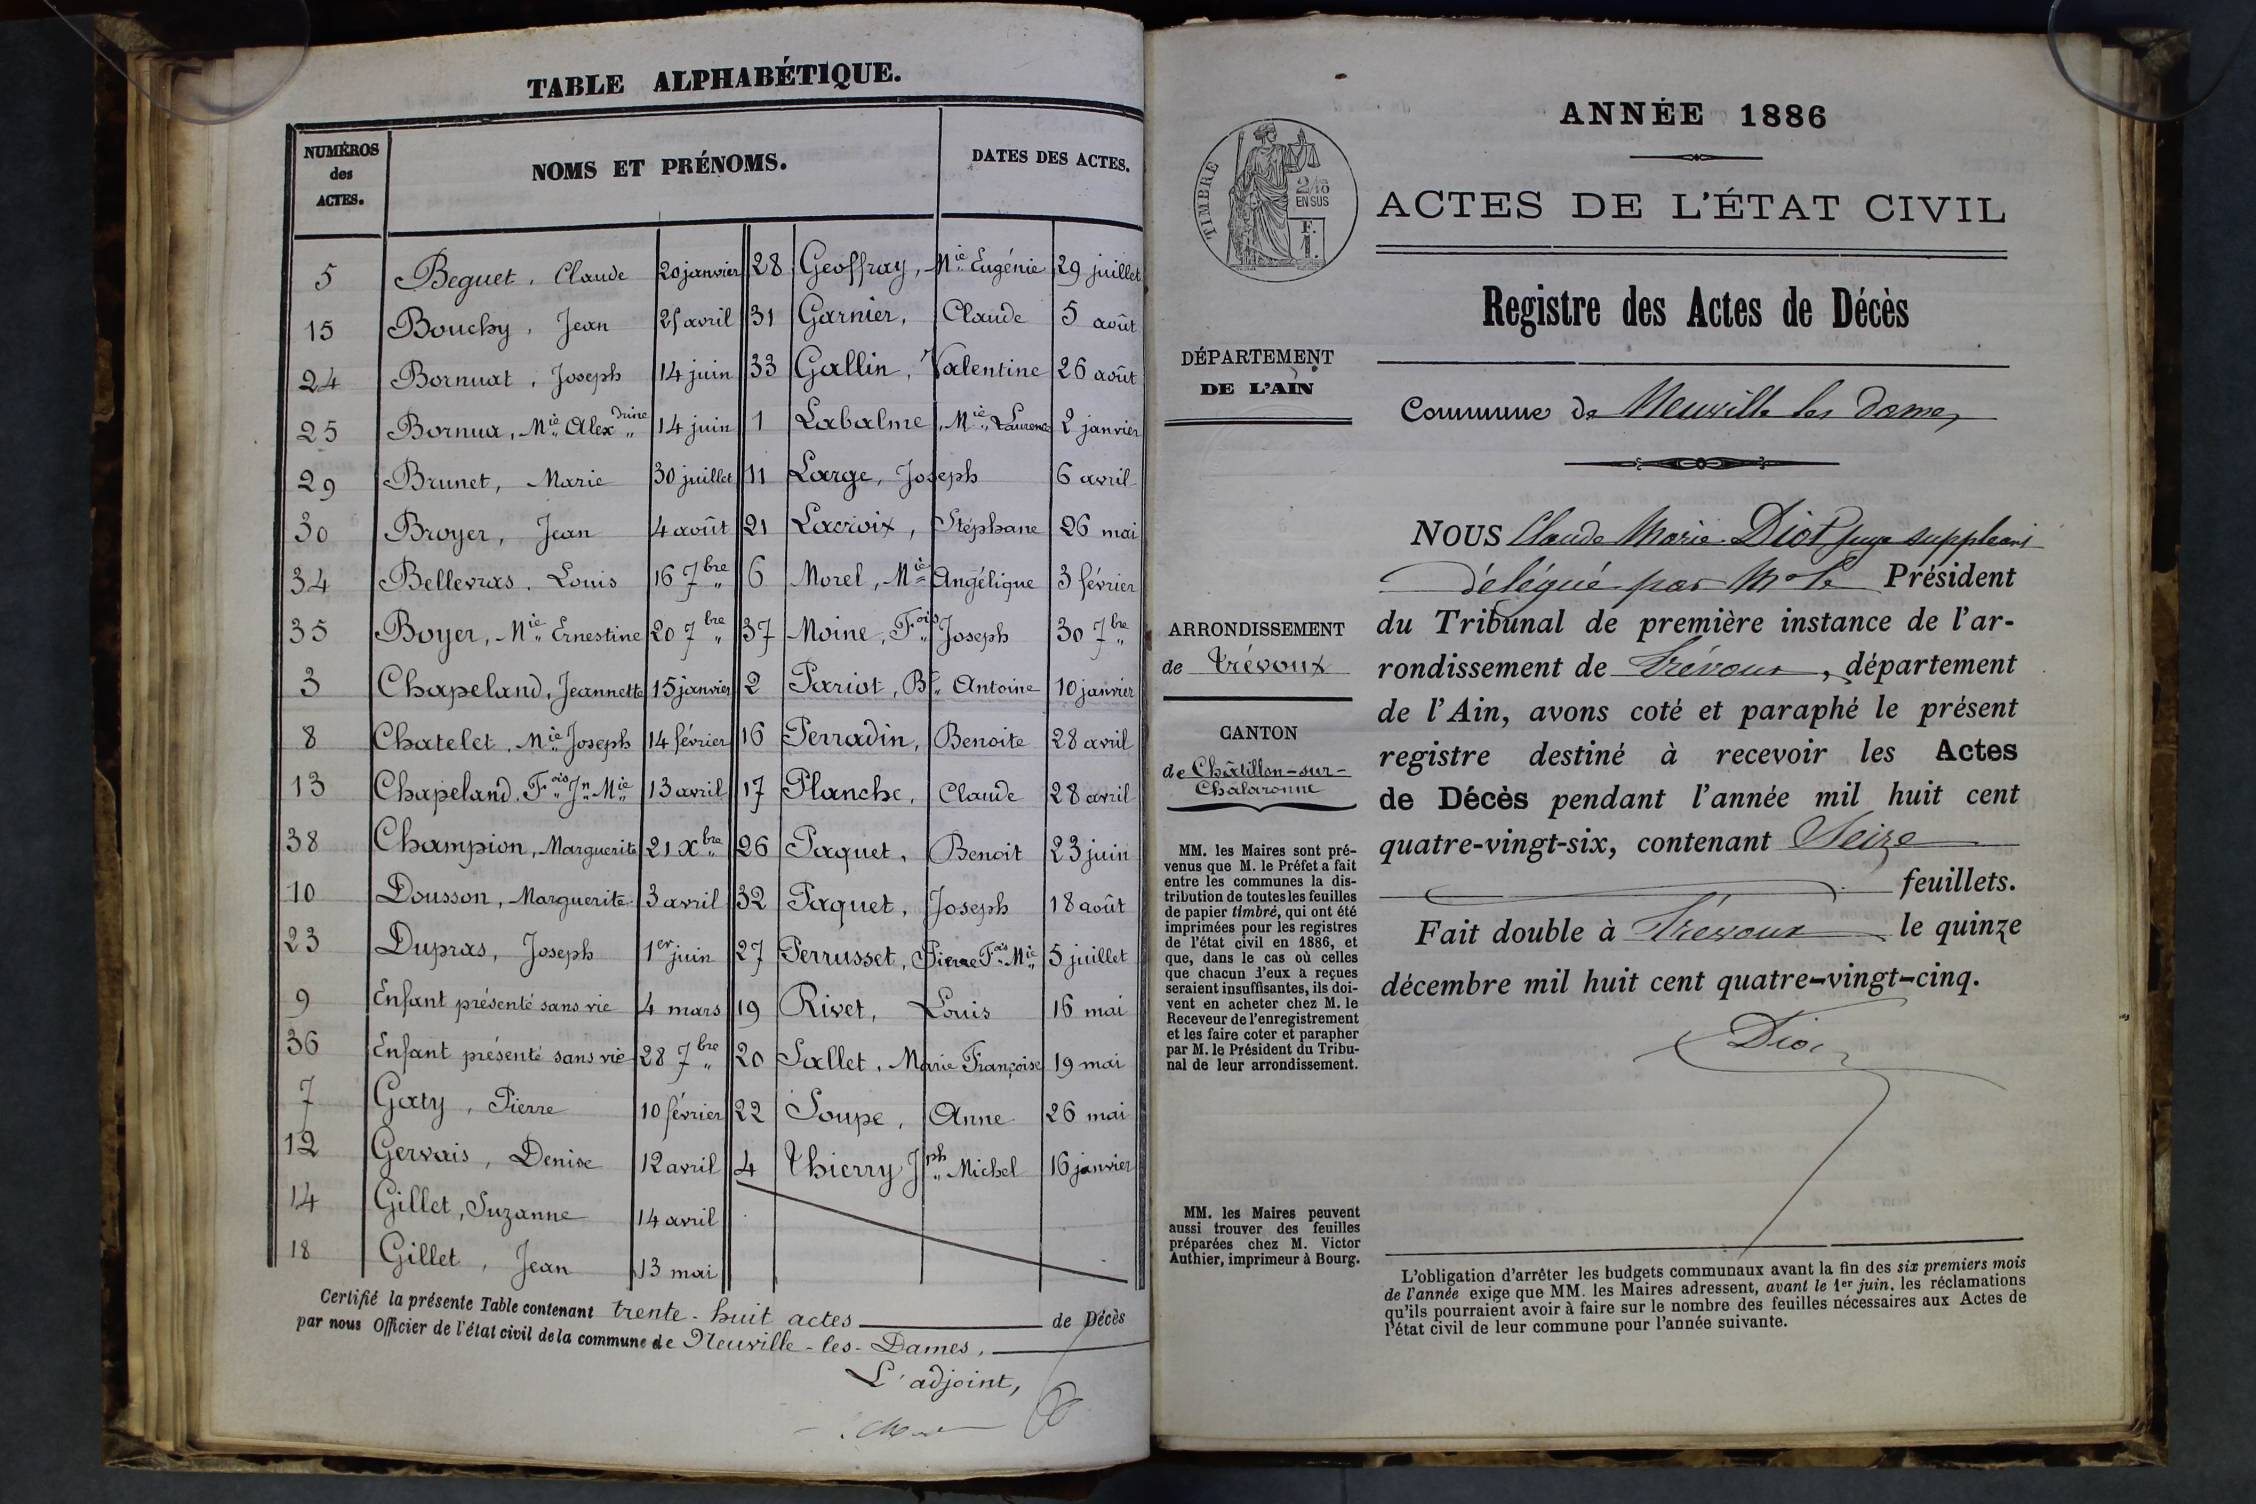 TABLE ALPHABÉTIQUE.
NUMÉROS des ACTES. NOMS ET PRÉNOMS. DATES DES ACTES.
5 Beguet, Claude 20 janvier 28 Geoffray, Mie Eugénie 29 juillet
15 Bouchy, Jean 25 avril 31 Garnier, Claude 5 août
24 Bornuat, Joseph 14 juin 33 Gallin, Valentine 26 août
25 Bornua, Mie Alexdrine 14 juin 1 Labalme, Mie Laurence 2 janvier
29 Brunet, Marie 30 juillet 11 Large, Joseph 6 avril
30 Broyer, Jean 4 août 21 Lacroix, Stéphane 26 mai
34 Bellevras. Louis 16 7bre 6 Morel, Mie Angélique 3 février
35 Boyer, Mie Ernestine 20 7bre 37 Moine, Fois Joseph 30 7bre
3 Chapeland, Jeannette 15 janvier 2 Pariot, Bt Antoine 10 janvier
8 Chatelet. Mie Joseph 14 février 16 Perradin, Benoite 28 avril
13 Chapeland. Fois Jn Mie 13 avril 17 Planche, Claude 28 avril
38 Champion, Marguerite 21 Xbre 26 Paquet, Benoit 23 juin
10 Dousson, Marguerite 3 avril 32 Paquet, Joseph 18 août
23 Dupras, Joseph 1er juin 27 Perrusset, Pierre Fois Mie 5 juillet
9 Enfant présenté sans vie 4 mars 19 Rivet, Louis 16 mai
36 Enfant présenté sans vie 28 7bre 20 Sallet, Marie Françoise 19 mai
7 Gaty, Pierre 10 février 22 Soupe, Anne 26 mai
12 Gervais, Denise 12 avril 4 Thierry Jph Michel 16 janvier
14 Gillet, Suzanne 14 avril
18 Gillet, Jean 13 mai
Certifié la présente Table contenant trente-huit actes de Décès
par nous Officier de l'état civil de la commune de Neuville-les-Dames,
L'adjoint,
ANNÉE 1886
TIMBRE
2/10
EN SUS
F.
1.
ACTES DE L'ÉTAT CIVIL
Registre des Actes de Décès
DÉPARTEMENT
DE L'AIN
Commune de Neuville les Dames
NOUS Claude Marie Diot juge suppléant
délégué par Mr le Président
du Tribunal de première instance de l'ar-
rondissement de Trévoux, département
de l'Ain, avons coté et paraphé le présent
registre destiné à recevoir les Actes
de Décès pendant l'année mil huit cent
quatre-vingt-six, contenant Seize
feuillets.
Fait double à Trévoux le quinze
décembre mil huit cent quatre-vingt-cinq.
Diot
ARRONDISSEMENT
de Trévoux
CANTON
de Châtillon-sur-
Chalaronne
MM. les Maires sont pré-
venus que M. le Préfet a fait
entre les communes la dis-
tribution de toutes les feuilles
de papier timbré, qui ont été
imprimées pour les registres
de l'état civil en 1886, et
que, dans le cas où celles
que chacun d'eux a reçues
seraient insuffisantes, ils doi-
vent en acheter chez M. le
Receveur de l'enregistrement
et les faire coter et parapher
par M. le Président du Tribu-
nal de leur arrondissement.
MM. les Maires peuvent
aussi trouver des feuilles
préparées chez M. Victor
Authier, imprimeur à Bourg.
L'obligation d'arrêter les budgets communaux avant la fin des six premiers mois
de l'année exige que MM. les Maires adressent, avant le 1er juin, les réclamations
qu'ils pourraient avoir à faire sur le nombre des feuilles nécessaires aux Actes de
l'état civil de leur commune pour l'année suivante.